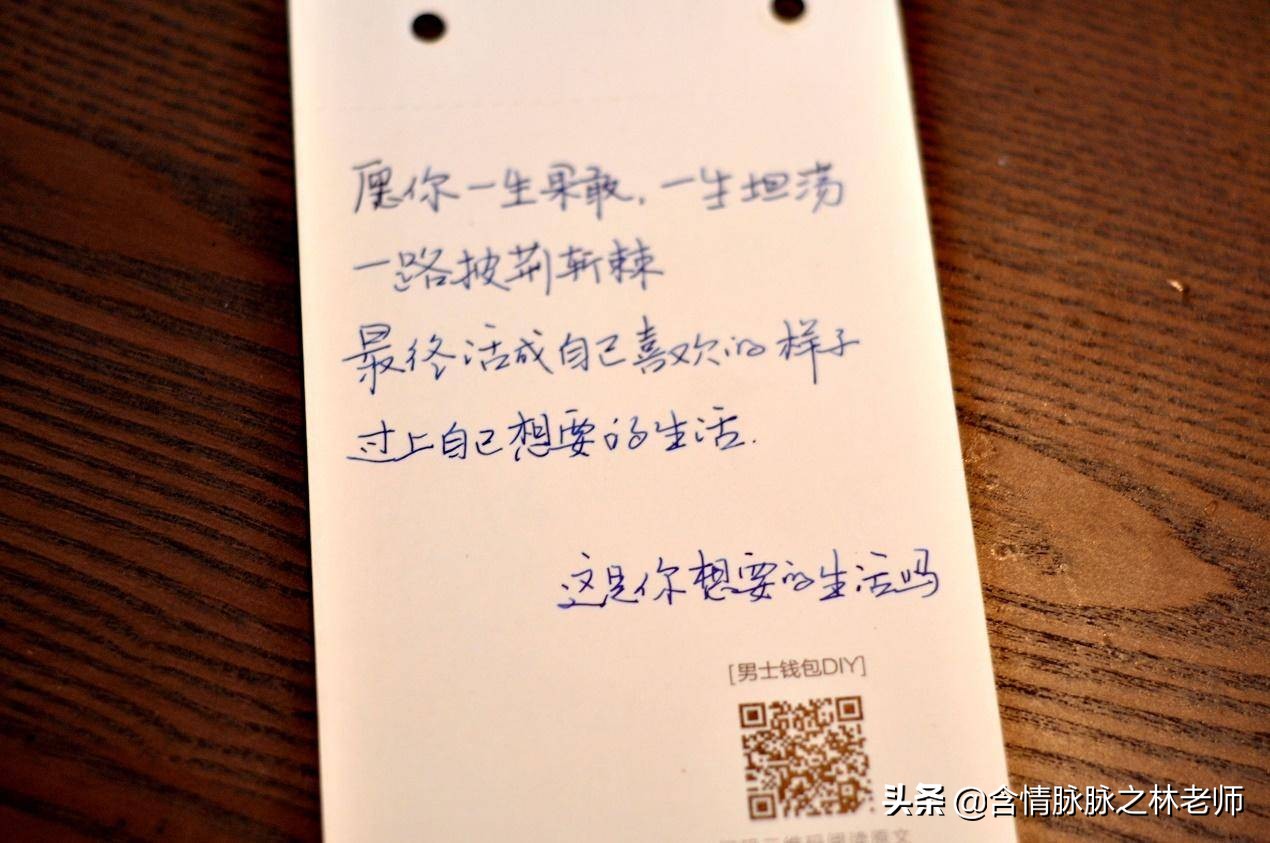 愿你一生果敢，一生坦荡
一路披荆斩棘
最终活成自己喜欢的样子
过上自己想要的生活.
这是你想要的生活吗
[男士钱包DIY]
头条 @含情脉脉之林老师